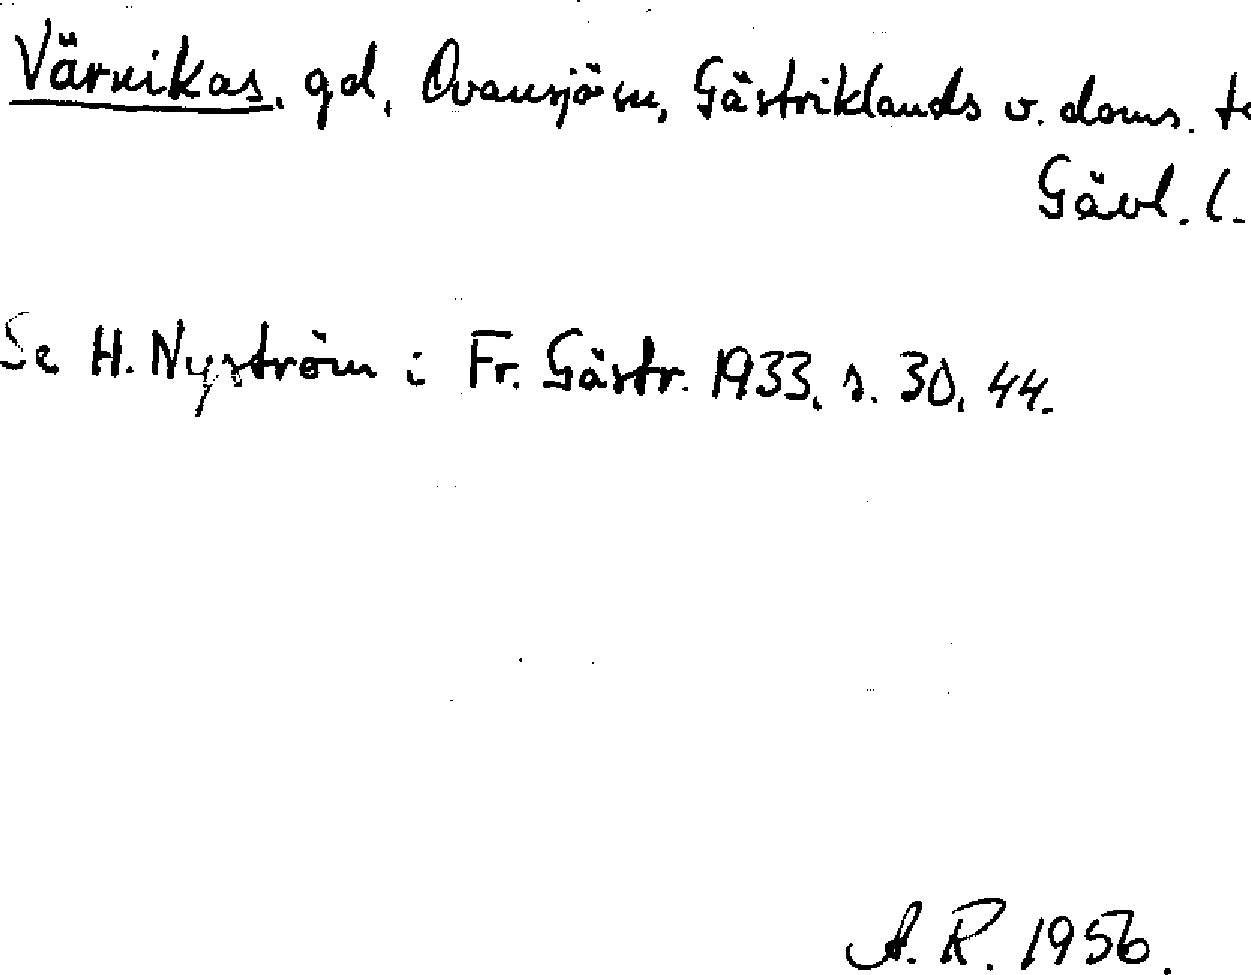 Värvikas, gd, Ovansjö sn, Gästriklands v. doms. t
Gävl. l.
Se H. Nyström i Fr. Gästr. 1933, s. 30, 44.
A. R. 1956.